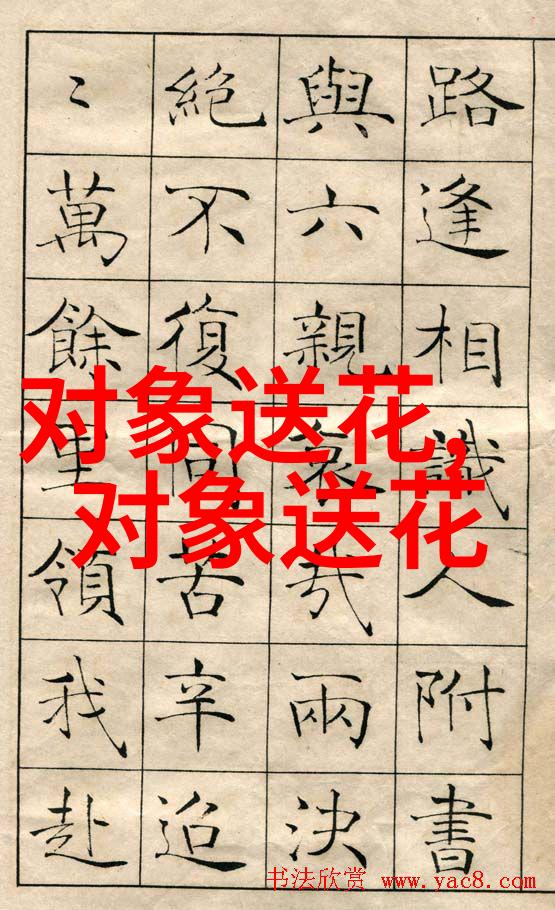 路逢相識人附書
與六親哀哉兩決
絕不復同苦辛迢
〻萬餘里領我赴
对象送花,
对象送花
书法欣赏 www.yac8.com